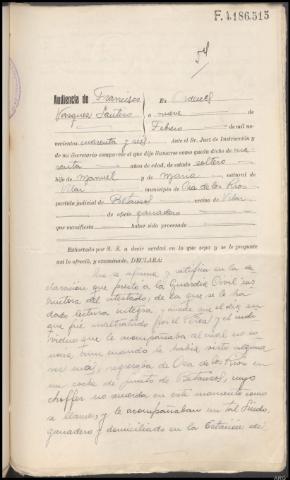 F.4.186.515
54
Audiencia de Francisco
Vazquez Santero
En Ordenes
a nueve de
Febrero de mil no-
vecientos cuarenta y seis Ante el Sr. Juez de Instrucción y
de mi Secretario compareció el que dijo llamarse como queda dicho de
años de edad, de estado soltero
hijo de Manuel y de Maria natural de
Vilar municipio de Oza de los Rios
partido judicial de Betanzos vecino de Vilar
de oficio ganadero
que manifiesta haber sido procesado
Exhortado por S. S. a decir verdad en lo que sepa y se le pregunte
así lo ofreció, y examinado, DECLARA:
Que se afirma y ratifica en la de-
claración que prestó a la Guardia Civil ins-
tructora del atestado, de la que se le ha
dado lectura integra, y añade que el dia en
que fue maltratado por el Perez y el indi-
viduo que le acompañaba al cual no co-
noce, bien cuando le había visto alguna
vez más, regresaba de Oza de los Rios en
un coche de punto de Betanzos, cuyo
choffer no recuerda en este momento como
se llama, y le acompañaban un tal
ganadero y domiciliado en la Estación de